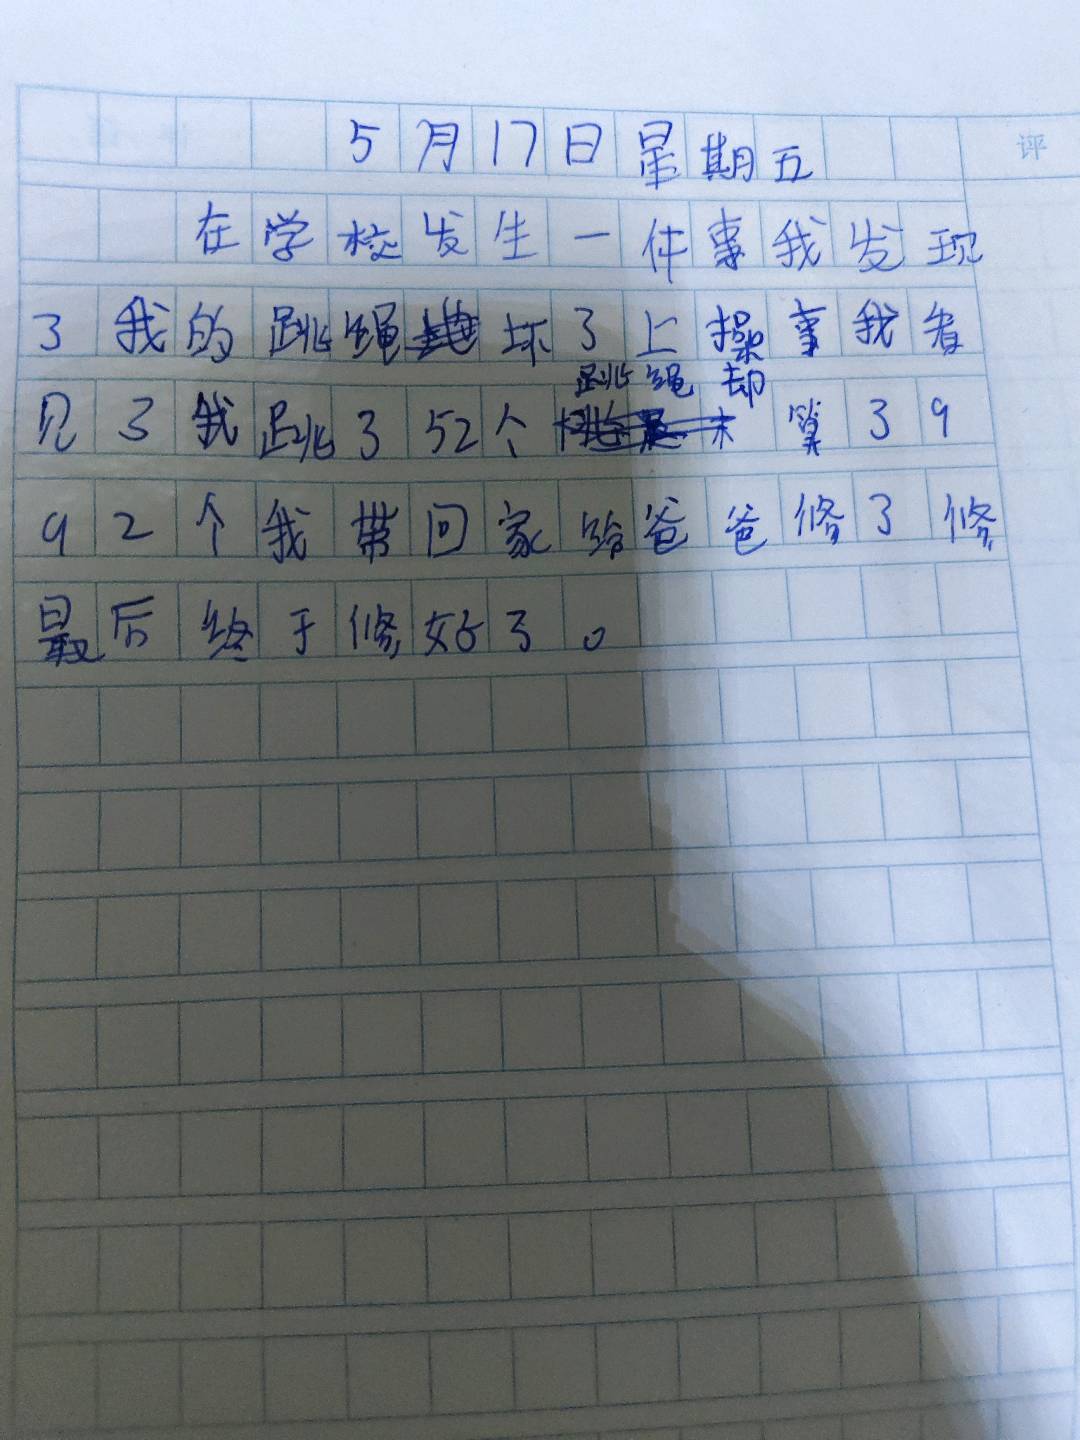 评
5月17日星期五
在学校发生一件事我发现
了我的跳绳坏了上操事我看
跳绳却
见了我跳了52个算了9
92个我带回家给爸爸修了修
最后终于修好了。